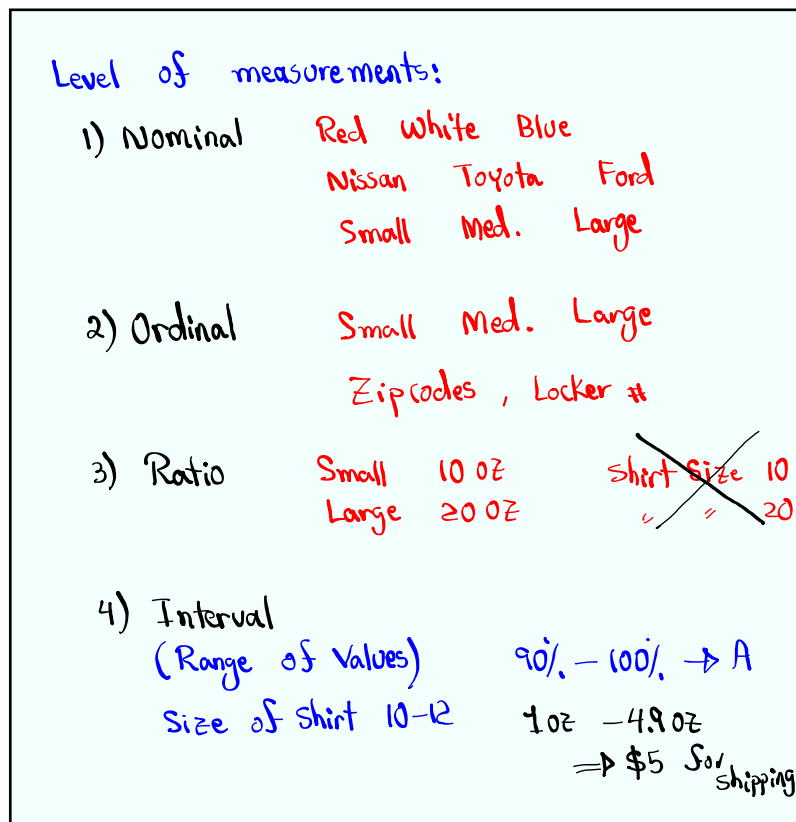 Level of measurements:
1) Nominal Red White Blue
Nissan Toyota Ford
Small Med. Large
2) Ordinal Small Med. Large
Zipcodes, Locker #
3) Ratio Small 10 oz Shirt Size 10
Large 20 oz " " 20
4) Interval
(Range of Values) 90% - 100% → A
Size of Shirt 10-12 1oz - 4.9 oz
⇒ $5 for shipping